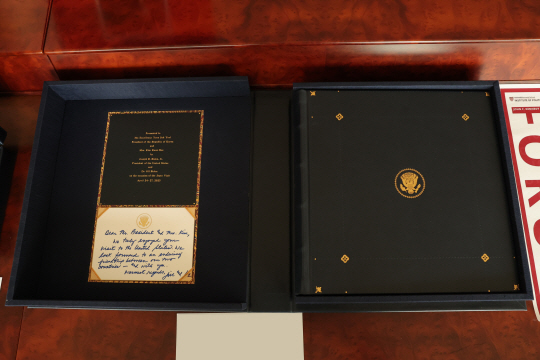 Presented to
His Excellency Yoon Suk Yeol
President of the Republic of Korea
and
Mrs. Kim Keon Hee
by
Joseph R. Biden, Jr.
President of the United States
and
Dr. Jill Biden
on the occasion of the State Visit
April 2023
Dear Mr. President & Mrs. Kim,
We truly enjoyed your
visit to the United States. We
look forward to an enduring
friendship between our two
countries — & with you
Warmest regards,
FORD